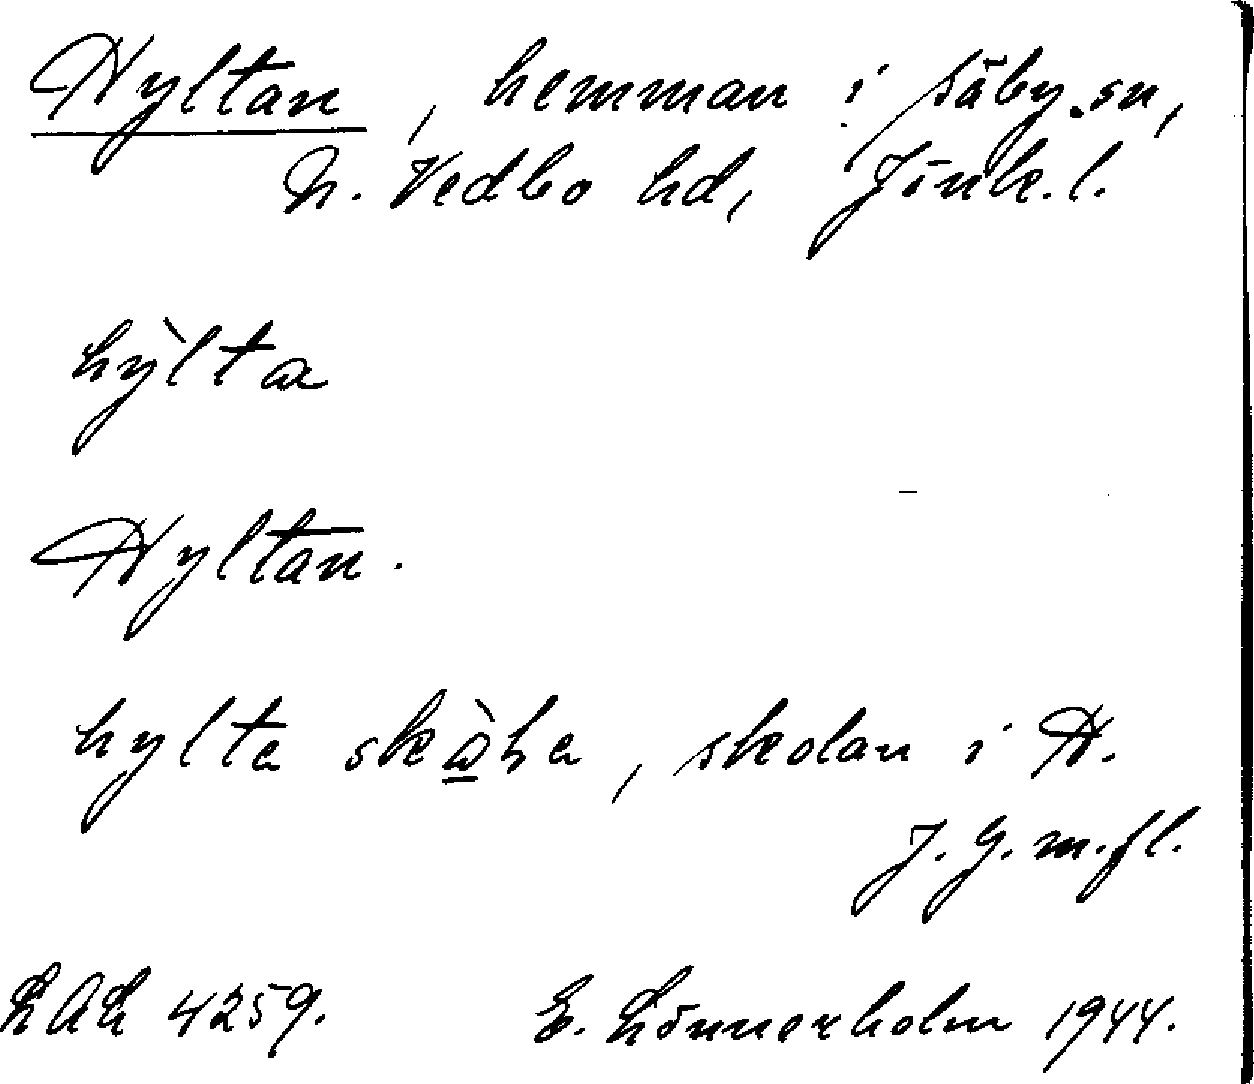 Hyltan, hemman i Säby sn,
N. Vedbo hd, Jönk. l.
hỳlta
Hyltan.
hylta skò̱̱la, skolan i H.
J. G. m. fl.
LAL 4259. E. Lönnerholm 1944.